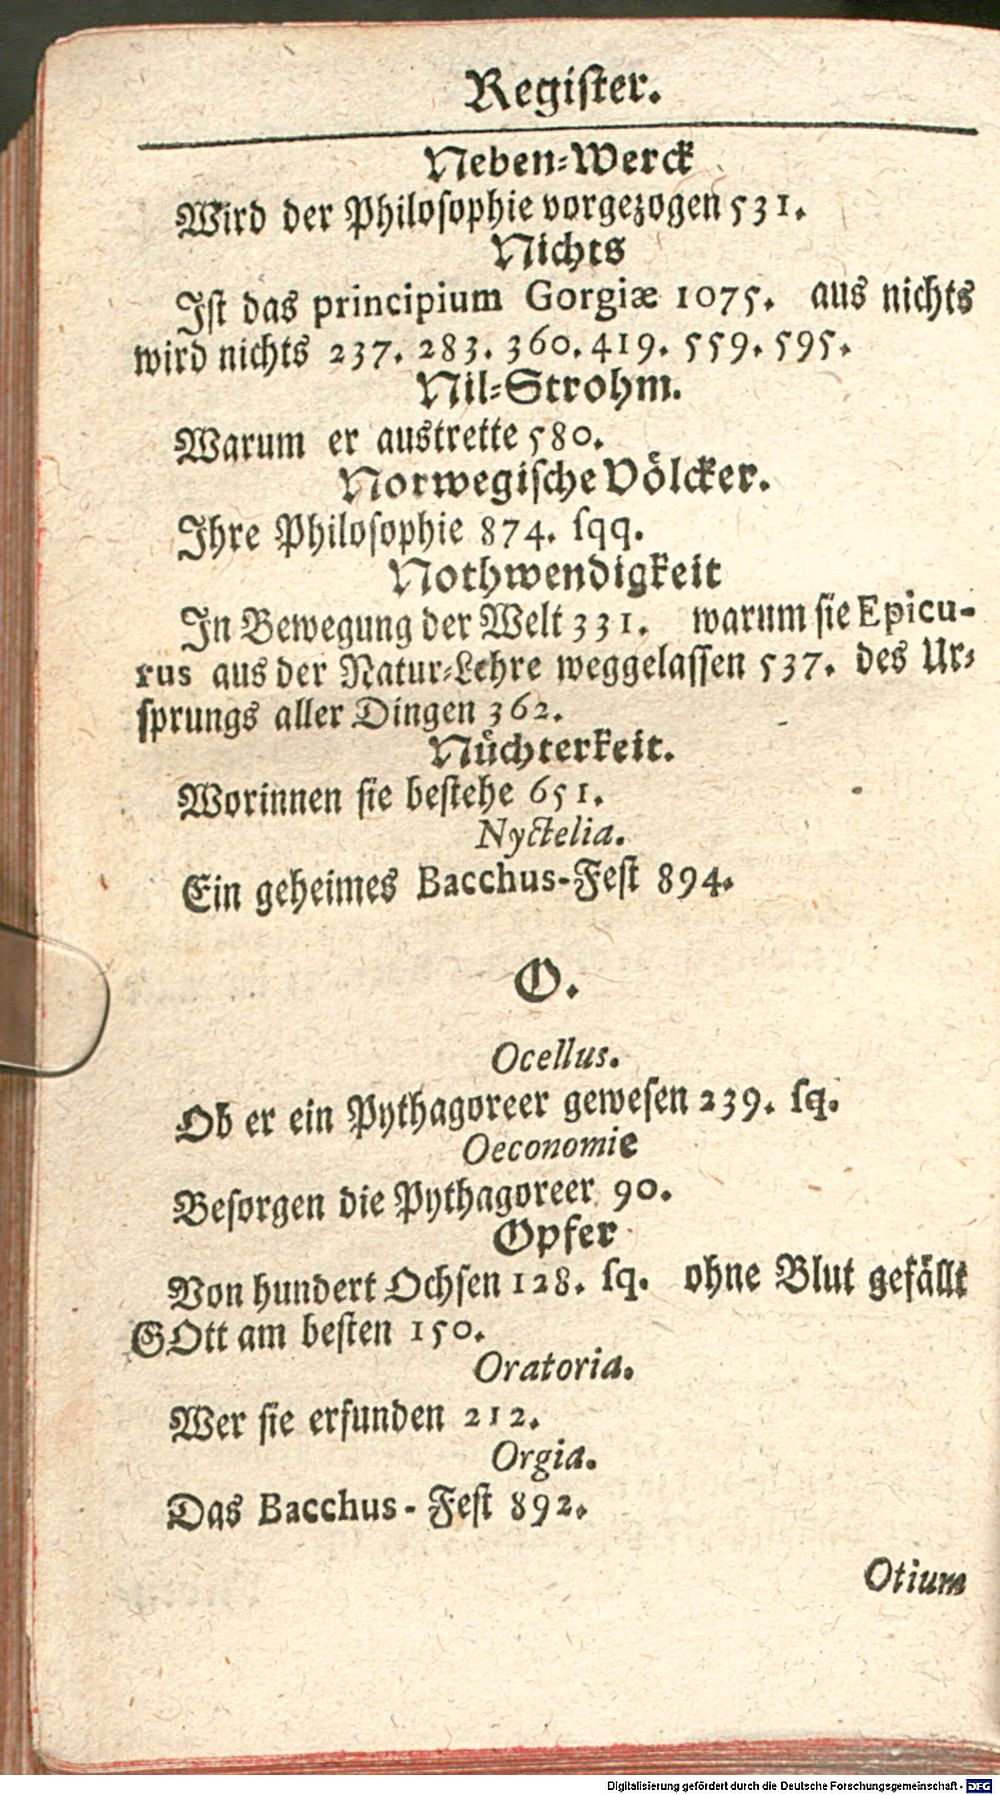 Register.
Neben-Werck
Wird der Philosophie vorgezogen 531.
Nichts
Ist das principium Gorgiæ 1075. aus nichts
wird nichts 237. 283. 360. 419. 559. 595.
Nil-Strohm.
Warum er austrette 580.
Norwegische Völcker.
Ihre Philosophie 874. sqq.
Nothwendigkeit
In Bewegung der Welt 331. warum sie Epicu-
rus aus der Natur-Lehre weggelassen 537. des Ur-
sprungs aller Dingen 362.
Nüchterkeit.
Worinnen sie bestehe 651.
Nyctelia.
Ein geheimes Bacchus-Fest 894.
O.
Ocellus.
Ob er ein Pythagoreer gewesen 239. sq.
Oeconomie
Besorgen die Pythagoreer 90.
Opfer
Von hundert Ochsen 128. sq. ohne Blut gefällt
GOtt am besten 150.
Oratoria.
Wer sie erfunden 212.
Orgia.
Das Bacchus-Fest 892.
Otium
Digitalisierung gefördert durch die Deutsche Forschungsgemeinschaft - DFG